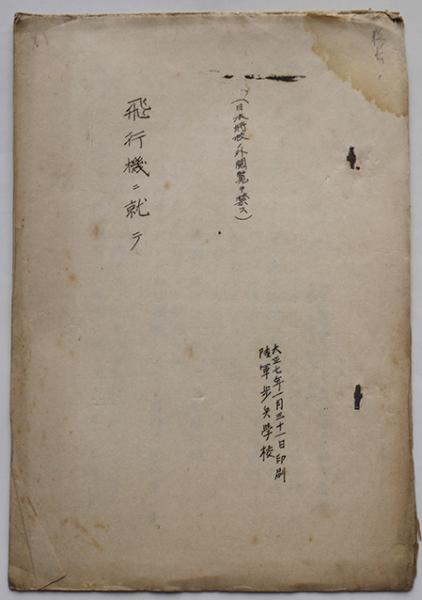 (日本将校ノ外閲覧ヲ禁ス)
飛行機ニ就テ
大正七年一月三十一日印刷
陸軍歩兵學校